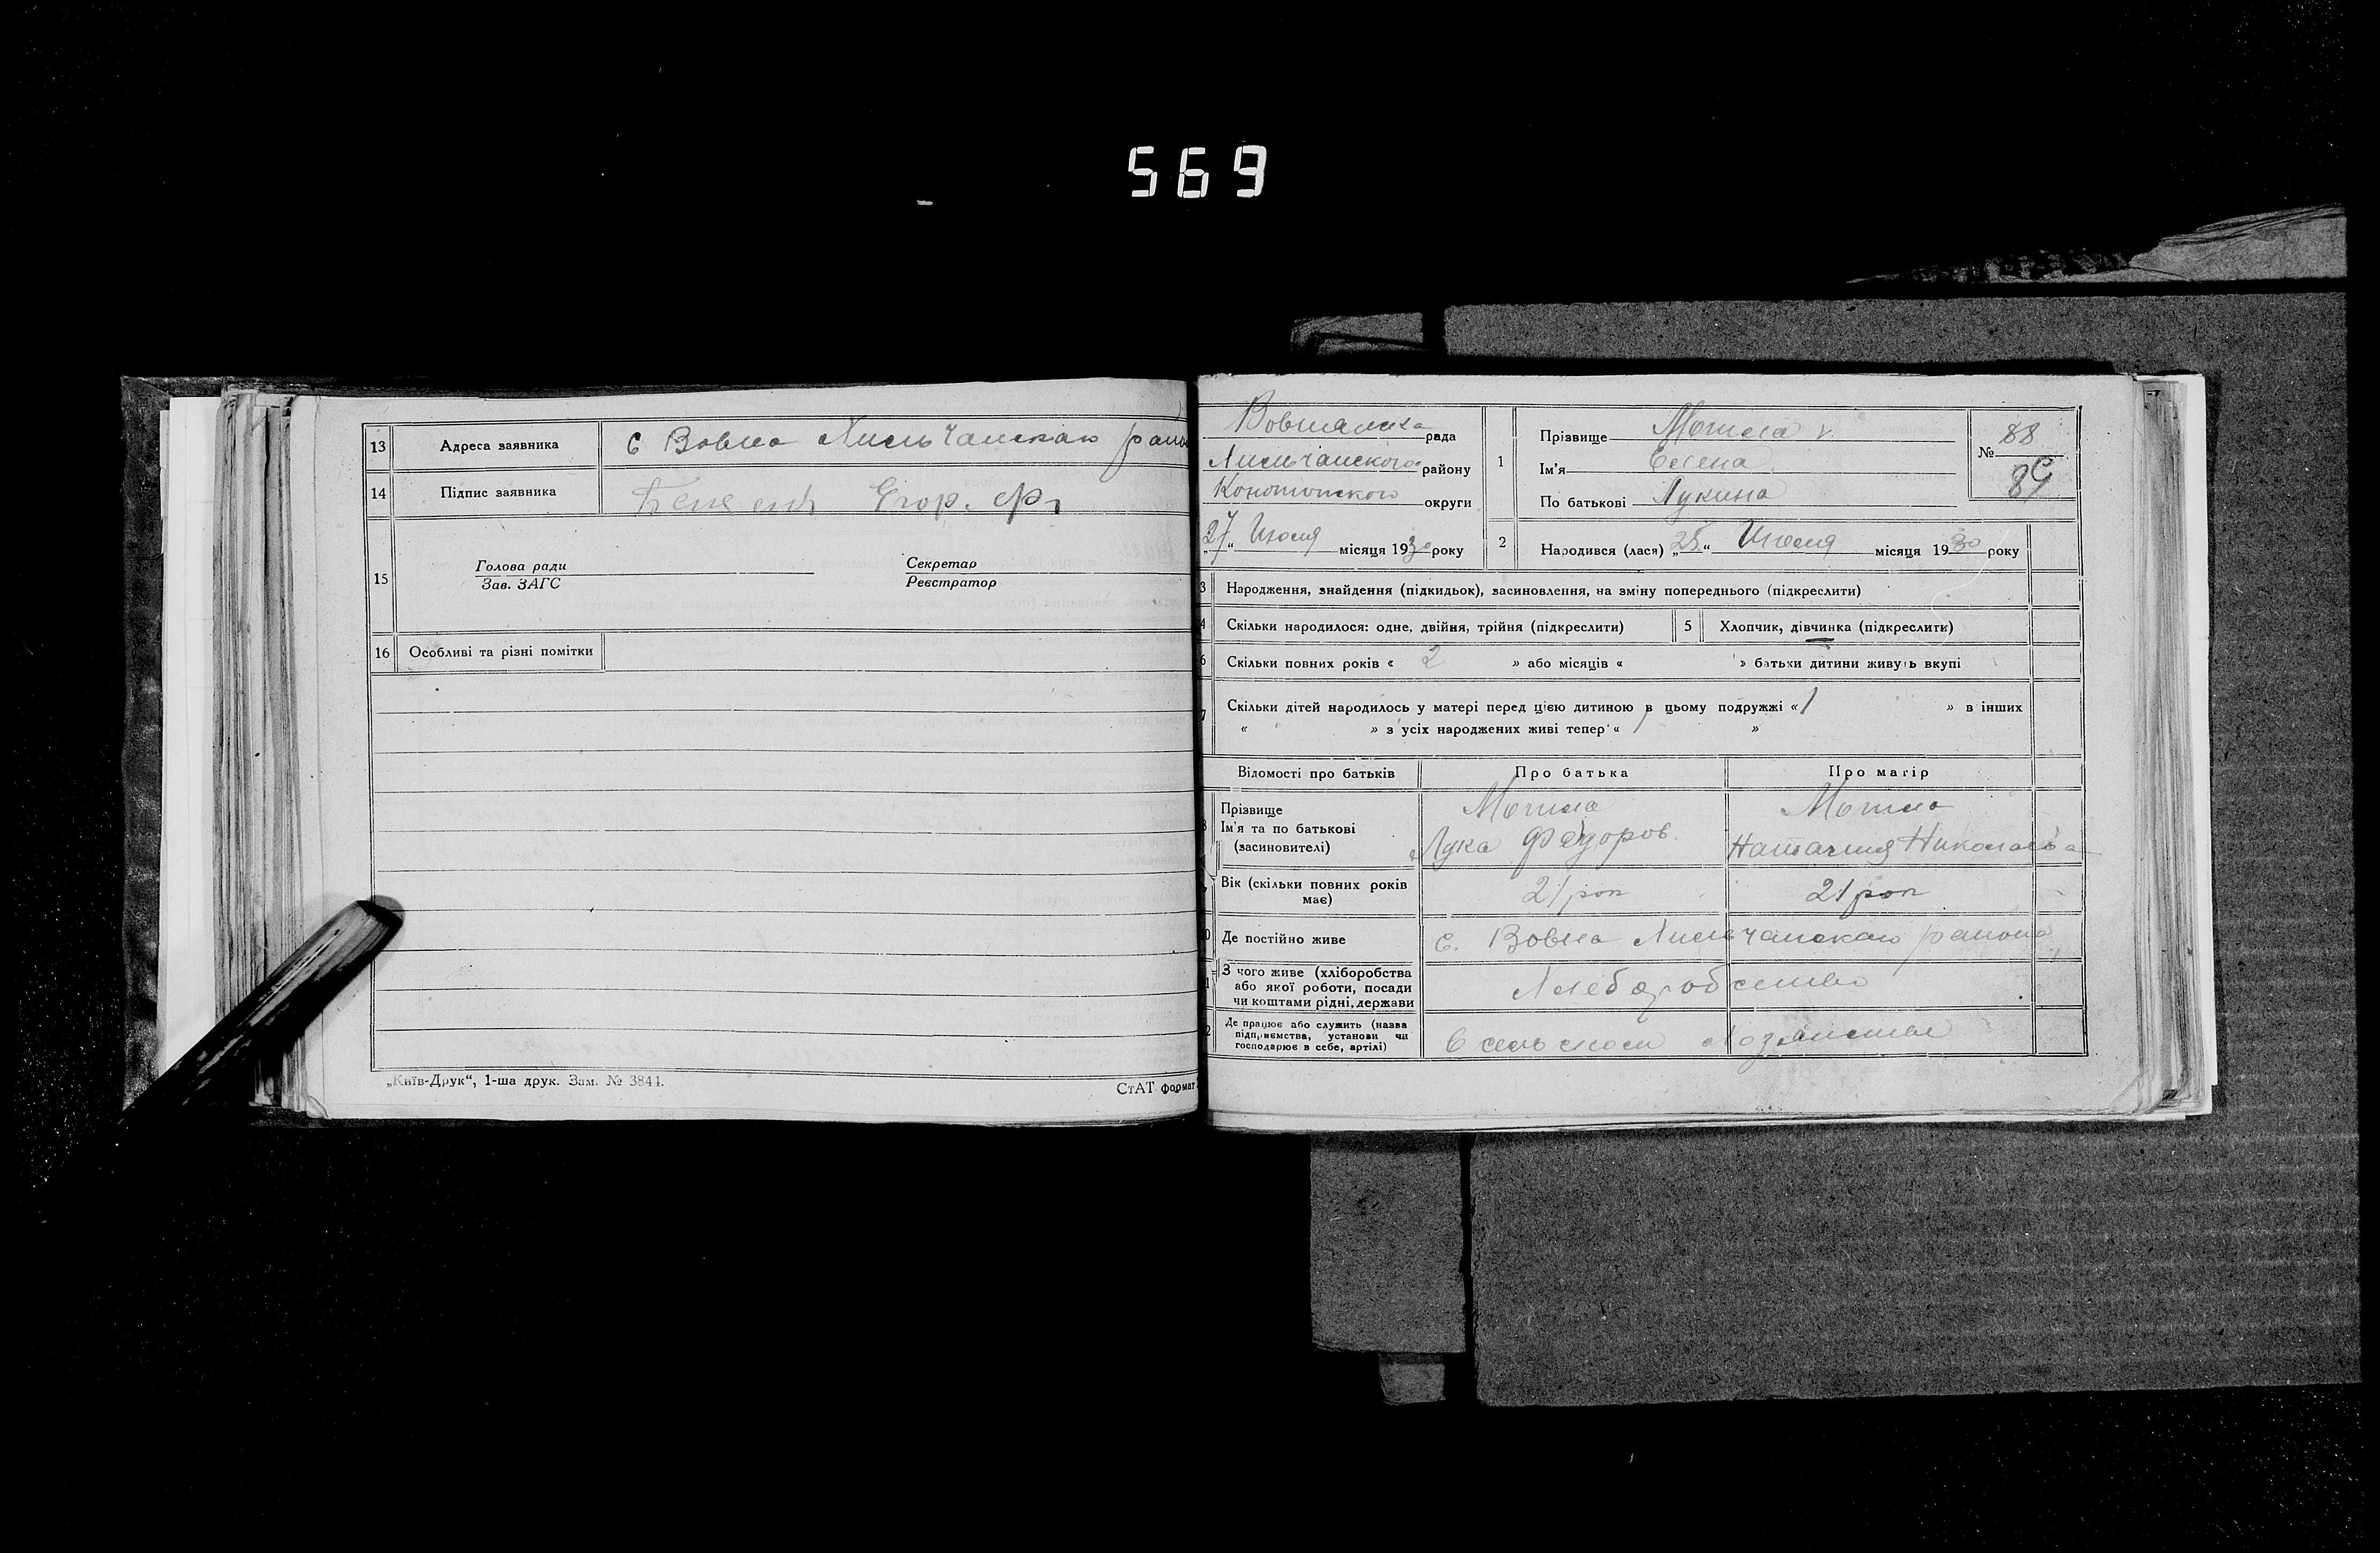 569
13 Адреса заявника с Вовна Хильчанскаго райо
14 Підпис заявника Егор. Ф
15 Голова ради Секретар
Зав. ЗАГС Реєстратор
16 Особливі та різні помітки
„Київ-Друк“, 1-ша друк. Зам. № 3844. СтАТ формат
рада
Хильчанского району
Конотопского округи
27 “ Июля місяця 1930 року
1 Прізвище Могила
Ім'я Елена
По батькові Лукина
88
№
89
2 Народився (лася) „25“ Июля місяця 1930 року
3 Народження, знайдення (підкидьок), засиновлення, на зміну попереднього (підкреслити)
4 Скільки народилося: одне, двійня, трійня (підкреслити) 5 Хлопчик, дівчинка (підкреслити)
6 Скільки повних років « 2 » або місяців « » батьки дитини живуть вкупі
7 Скільки дітей народилось у матері перед цією дитиною в цьому подружжі «1 » в інших
« » з усіх народжених живі тепер « 1 »
Відомості про батьків Про батька Про матір
Прізвище Могила Могила
Ім'я та по батькові Лука Федоров. Наталия Николаева
(засиновителі)
Вік (скільки повних років 21 рок 21 рок
має)
Де постійно живе с. Вовна Хильчанскаго района
З чого живе (хліборобства
або якої роботи, посади Хлеборобство
чи коштами рідні, держави
Де працює або служить (назва
підприємства, установи чи в сельском хозяйстве
господарює в себе, артілі)